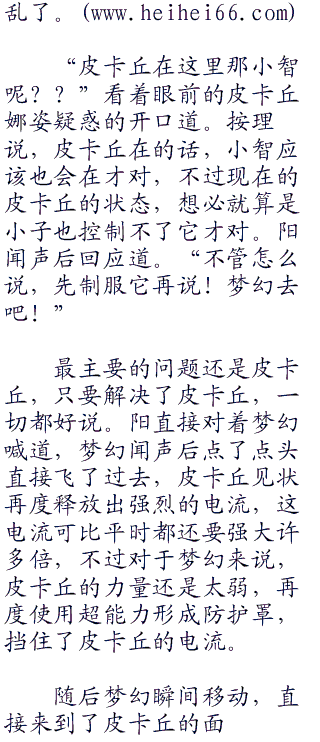 乱了。(www.heihei66.com)
“皮卡丘在这里那小智
呢？？”看着眼前的皮卡丘
娜姿疑惑的开口道。按理
说，皮卡丘在的话，小智应
该也会在才对，不过现在的
皮卡丘的状态，想必就算是
小子也控制不了它才对。阳
闻声后回应道。“不管怎么
说，先制服它再说！梦幻去
吧！”
最主要的问题还是皮卡
丘，只要解决了皮卡丘，一
切都好说。阳直接对着梦幻
喊道，梦幻闻声后点了点头
直接飞了过去，皮卡丘见状
再度释放出强烈的电流，这
电流可比平时都还要强大许
多倍，不过对于梦幻来说，
皮卡丘的力量还是太弱，再
度使用超能力形成防护罩，
挡住了皮卡丘的电流。
随后梦幻瞬间移动，直
接来到了皮卡丘的面